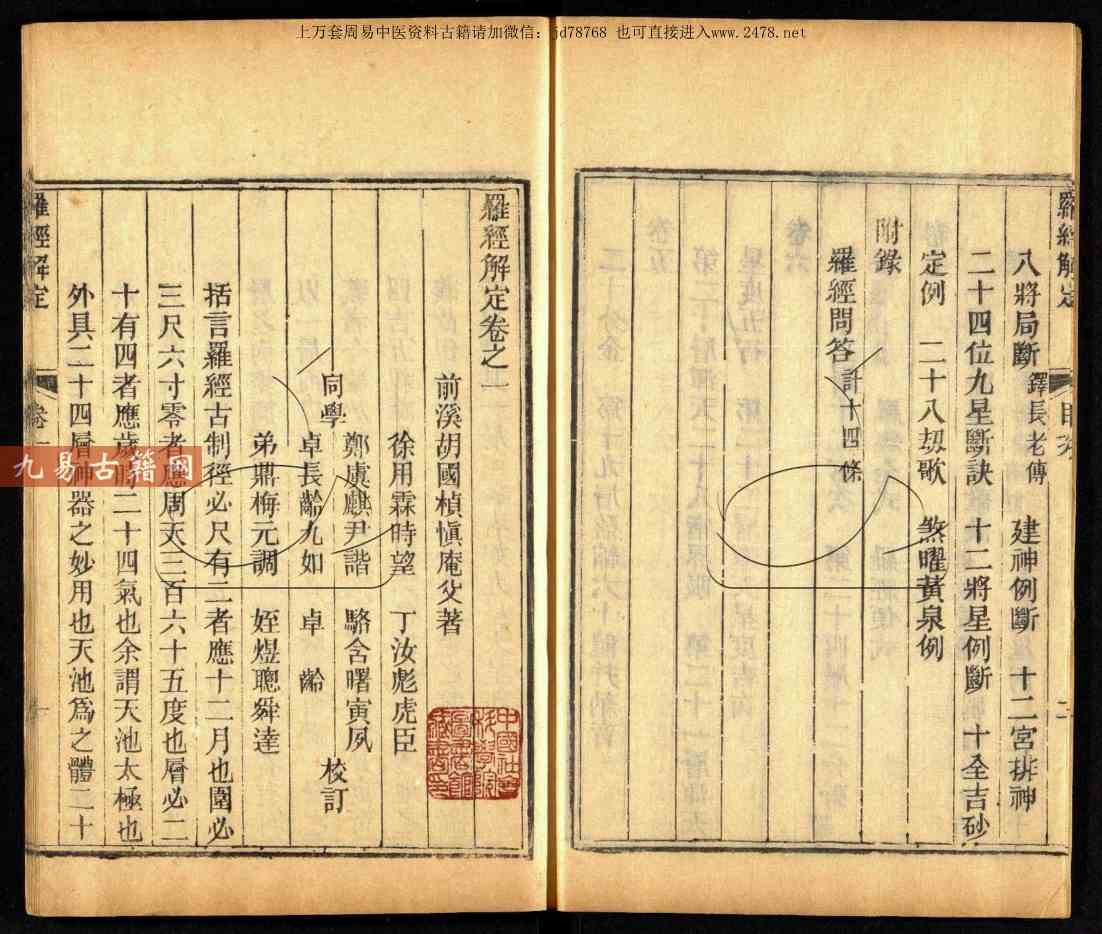 上万套周易中医资料古籍请加微信：jd78768 也可直接进入www.2478.net
羅經解定
目次
二
八將局斷 鐸長老傳 建神例斷 十二宮排神
二十四位九星斷訣 十二將星例斷 十全吉砂
定例 二十八刧歌 煞曜黃泉例
附錄
羅經問答 計十四條
羅經解定卷之一
前溪胡國楨愼庵父著
徐用霖時望 丁汝彪虎臣
同學
鄭虞麒尹諧 駱含曙寅夙
卓長齡九如 卓 齡
校訂
弟鼎梅元調 姪煜聰舜達
括言羅經古制徑必尺有二者應十二月也圍必
三尺六寸零者應周天三百六十五度也層必二
十有四者應歲時二十四氣也余謂天池太極也
外具二十四層神器之妙用也天池爲之體二十
羅經解定
卷一
一
中國社會科學院圖書館藏書印
九易古籍網